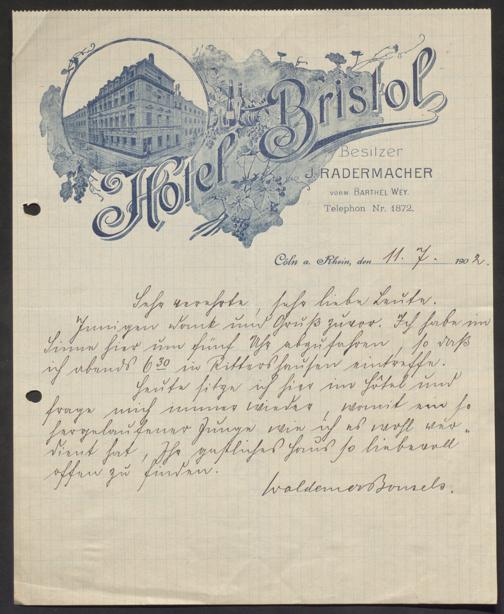 Hôtel Bristol
Besitzer
J. RADERMACHER
VORM. BARTHEL WEY.
Telephon Nr. 1872.
Cöln a. Rhein, den 11. 7. 1902.
Sehr verehrte, sehr liebe Leute.
Innigen Dank und Gruß zuvor. Ich habe im
Sinne hier um fünf Uhr abzufahren, so daß
ich abends 6 30 in Rittershausen eintreffe.
Heute sitze ich hier im Hôtel und
frage mich immer wieder, womit ein so
hergelaufener Junge wie ich es wohl ver-
dient hat, Ihr gastliches Haus so liebevoll
offen zu finden.
Waldemar Bonsels.